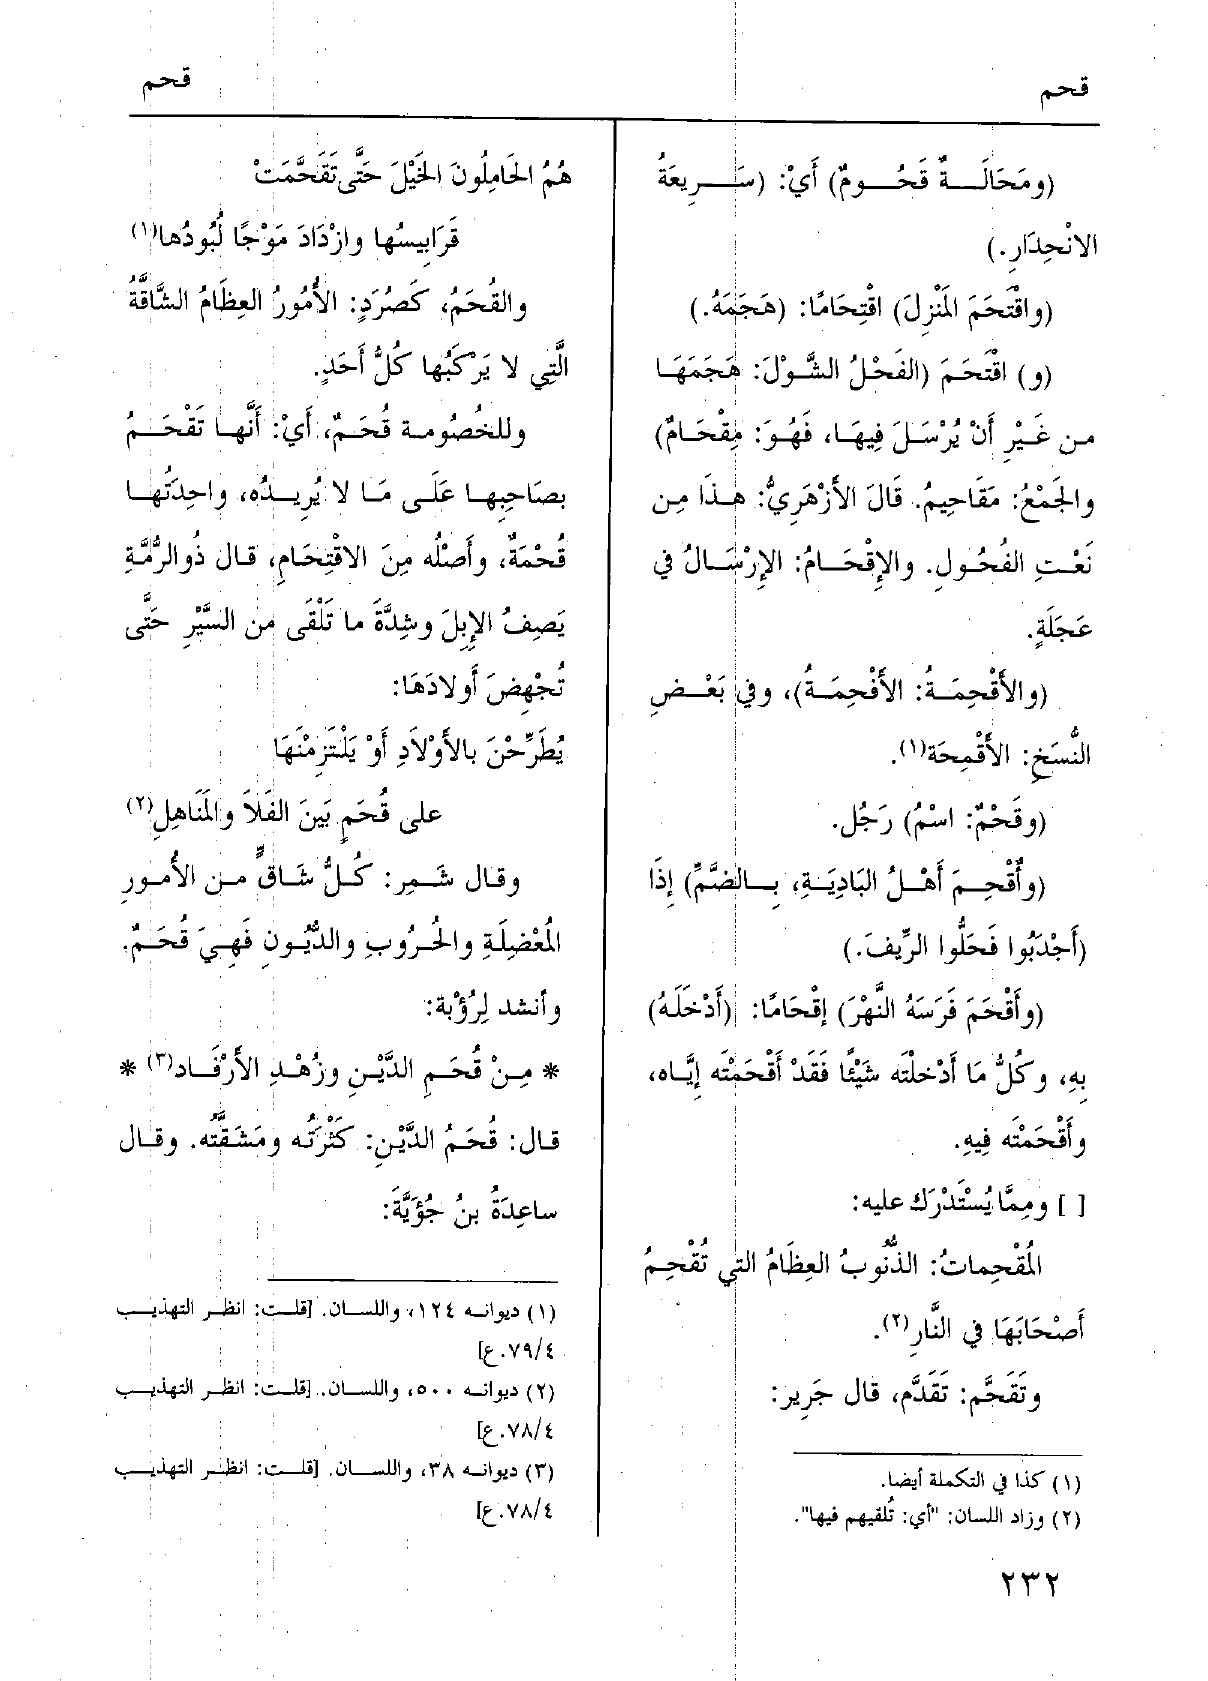 قحم
قحم
(ومَحَالَةٌ قَحُومٌ) أَيْ: (سَرِيعَةُ
الانْحِدَارِ.)
(واقْتَحَمَ المَنْزِلَ) اقْتِحَامًا: (هَجَمَهُ.)
(و) اقْتَحَمَ (الفَحْلُ الشَّوْلَ: هَجَمَهَا
من غَيْرِ أَنْ يُرْسَلَ فِيهَا، فَهُوَ: مِقْحَامٌ)
والجَمْعُ: مَقَاحِيمُ. قَالَ الأَزْهَرِيُّ: هذَا مِن
نَعْتِ الفُحُولِ. والإِقْحَامُ: الإِرْسَالُ في
عَجَلَةٍ.
(والأَقْحِمَةُ: الأَفْحِمَةُ)، وفي بَعْضِ
النُّسَخِ: الأَقْمِحَة(١).
(وقَحْمٌ: اسْمُ) رَجُل.
(وأُقْحِمَ أَهْلُ البَادِيَةِ، بِالضَّمِّ) إِذَا
(أَجْدَبُوا فَحَلُّوا الرِّيفَ.)
(وأَقْحَمَ فَرَسَهُ النَّهْرَ) إِقْحَامًا: (أَدْخَلَهُ)
بِهِ، وكُلُّ مَا أَدْخلتَه شَيْئًا فَقَدْ أَقْحَمْتَه إِيَّاه،
وأَقْحَمْتَه فِيهِ.
[ ] ومِمَّا يُسْتَدْرَك عليه:
المُقْحِماتُ: الذُّنُوبُ العِظَامُ التي تُقْحِمُ
أَصْحَابَهَا في النَّارِ(٢).
وتَقَحَّم: تَقَدَّم، قال جَرِير:
(١) كذا في التكملة أيضا.
(٢) وزاد اللسان: "أي: تُلقيهم فيها".
هُمُ الحَامِلُونَ الخَيْلَ حَتَّى تَقَحَّمَتْ
قَرَابِيسُها وازْدَادَ مَوْجًا لُبُودُها(١)
والقُحَمُ، كَصُرَدٍ: الأُمُورُ العِظَامُ الشَّاقَّةُ
الَّتِي لا يَرْكَبُها كُلُّ أَحَدٍ.
وللخُصُومة قُحَمٌ، أَيْ: أَنَّها تَقْحَمُ
بصَاحِبِها عَلَى مَا لا يُرِيدُه، واحِدَتُها
قُحْمَةٌ، وأَصْلُه مِنَ الاقْتِحَامِ، قال ذُوالرُّمَّةِ
يَصِفُ الإِبِلَ وشِدَّةَ ما تَلْقَى من السَّيْرِ حَتَّى
تُجْهِضَ أَولادَهَا:
يُطَرِّحْنَ بالأَوْلَادِ أَوْ يَلْتَزِمْنَهَا
على قُحَمٍ بَينَ الفَلَا والمَنَاهِلِ(٢)
وقال شَمِر: كُلُّ شَاقٍّ من الأُمورِ
المُعْضِلَةِ والحُرُوبِ والدُّيُونِ فَهِيَ قُحَمٌ.
وأنشد لِرُؤْبة:
* مِنْ قُحَمِ الدَّيْنِ وزُهْدِ الأَرْفَاد(٣) *
قال: قُحَمُ الدَّيْنِ: كَثْرَتُه ومَشَقَّتُه. وقال
ساعِدَةُ بنُ جُؤَيَّةَ:
(١) ديوانه ١٢٤، واللسان. [قلت: انظر التهذيب
٧٩/٤.ع]
(٢) ديوانه ٥٠٠، واللسان. [قلت: انظر التهذيب
٧٨/٤.ع]
(٣) ديوانه ٣٨، واللسان. [قلت: انظر التهذيب
٧٨/٤.ع]
٢٣٢